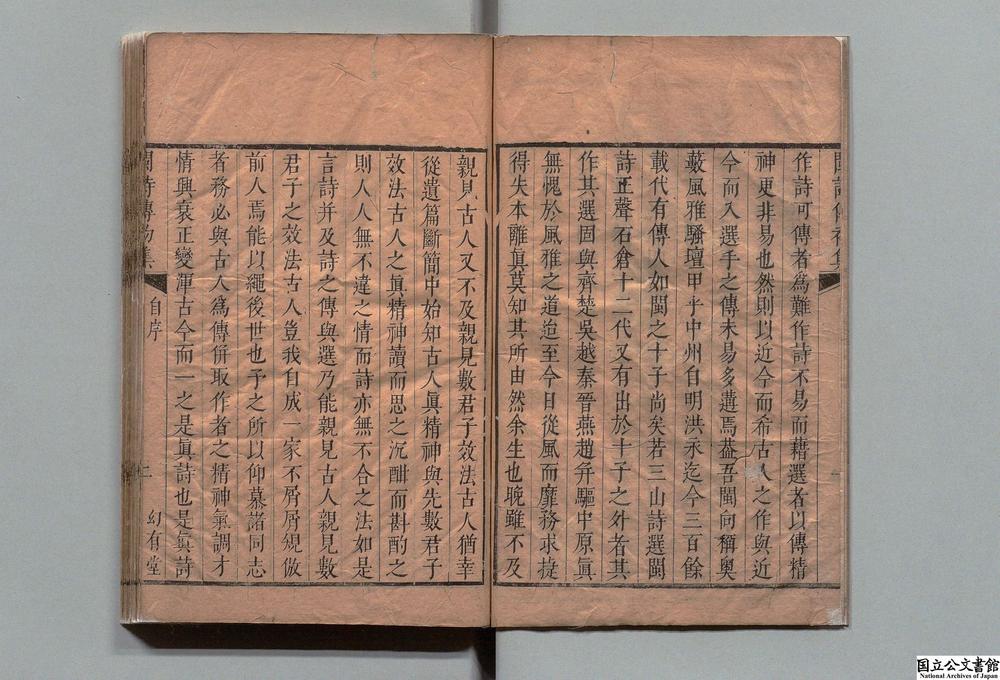 作詩可傳者為難作詩不易而藉選者以傳精
神更非易也然則以近今而希古人之作與近
今而入選手之傳未易多遘焉葢吾閩向稱奧
藪風雅騷壇甲乎中州自明洪永迄今三百餘
載代有傳人如閩之十子尚矣若三山詩選閩
詩正聲石倉十二代又有出於十子之外者其
作其選固與齊楚吳越秦晉燕趙并驅中原眞
無愧於風雅之道迨至今日從風而靡務求捷
得失本離眞莫知其所由然余生也晚雖不及
一
親見古人又不及親見數君子效法古人猶幸
從遺篇斷簡中始知古人眞精神與先數君子
效法古人之眞精神讀而思之沉酣而斟酌之
則人人無不違之情而詩亦無不合之法如是
言詩并及詩之傳與選乃能親見古人親見數
君子之效法古人豈我自成一家不屑屑䂓倣
前人焉能以繩後世也予之所以仰慕諸同志
者務必與古人為傳倂取作者之精神氣調才
情興衰正變渾古今而一之是眞詩也是眞詩
閩詩傳初集
自序
二
幻有堂
国立公文書館
National Archives of Japan